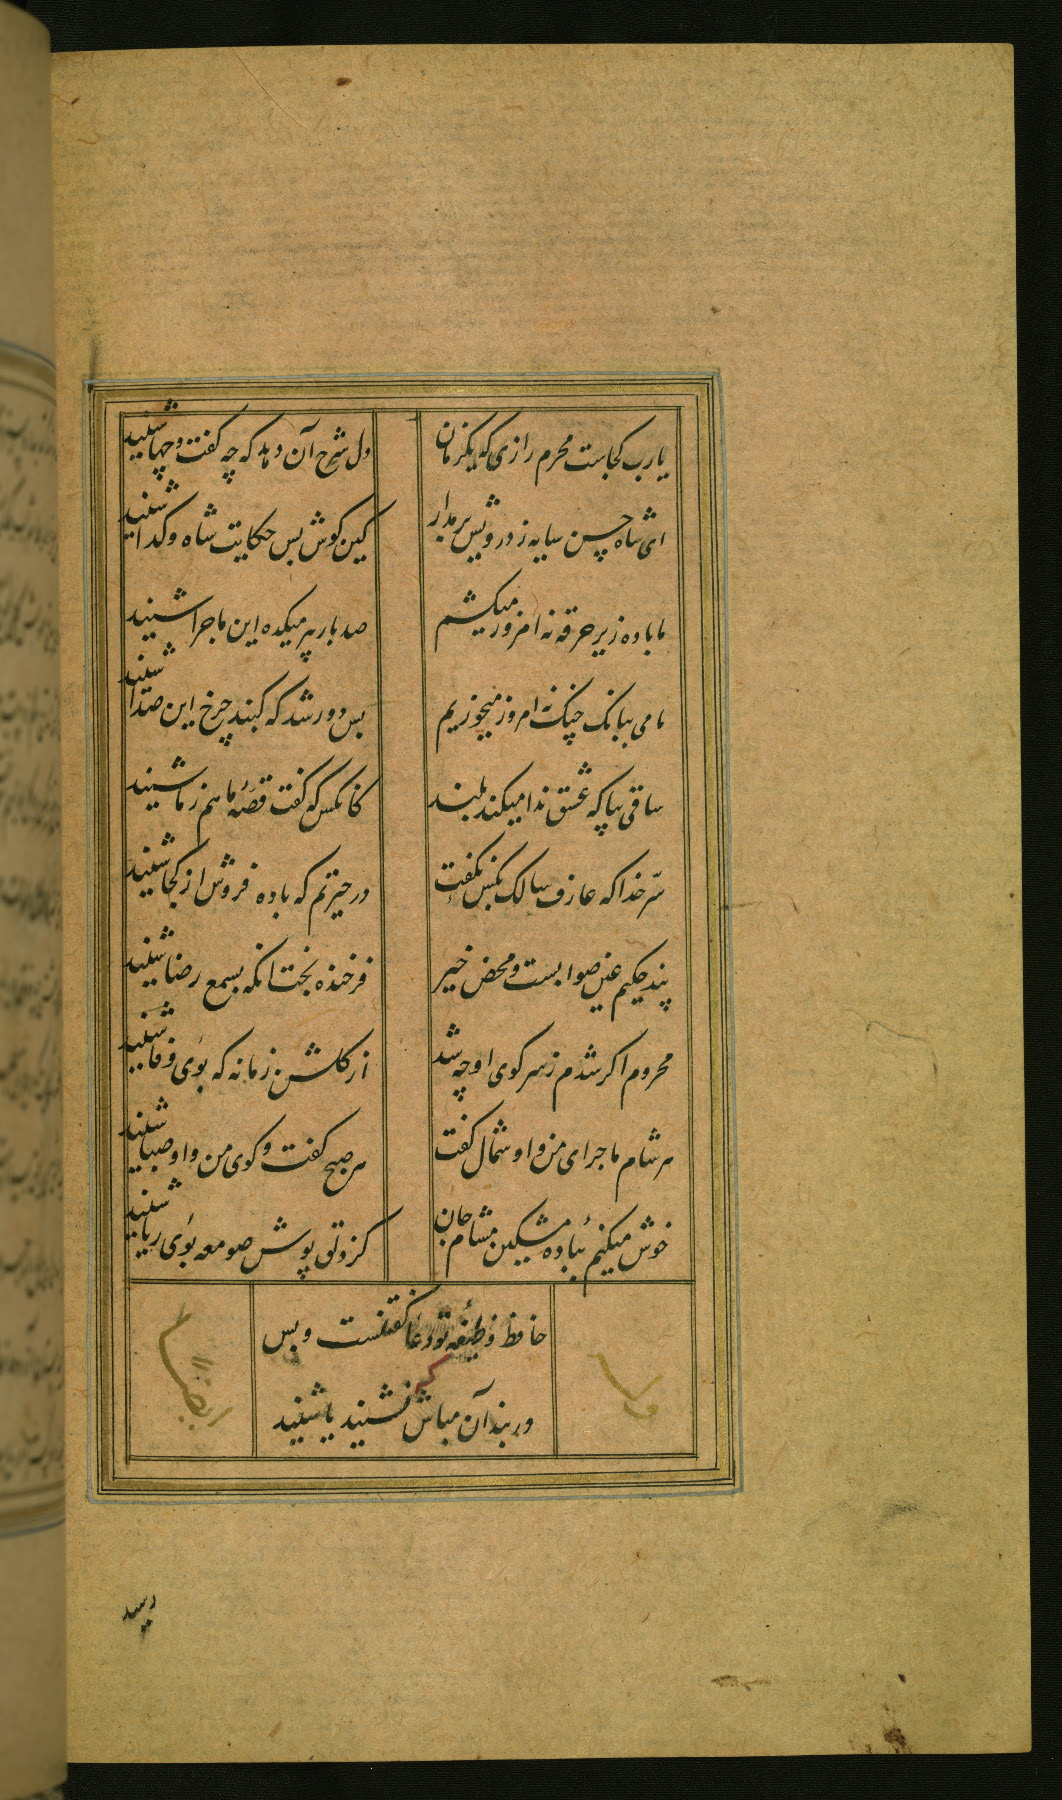 یارب کجاست محرم رازی که یکزمان
دل شرح آن دهد که چه گفت و چها شنید
ای شاه حسن سایه ز درویش برمدار
کین گوش بس حکایت شاه و کدا شنید
ما باده زیر خرقه نه امروز میکشیم
صد بار پیر میکده این ماجرا شنید
ما می ببانک چنک نه امروز میخوریم
بس دور شد که کنبد چرخ این صدا شنید
ساقی بیا که عشق ندا میکند بلند
کانکس که گفت قصهٔ ما هم ز ما شنید
سرّ خدا که عارف سالک بکس نکفت
در حیرتم که باده فروش از کجا شنید
پند حکیم عین صوابست و محض خیر
فرخنده بخت انکه بسمع رضا شنید
محروم اکر شدم ز سر کوی او چه شد
از کلشن زمانه که بوی وفا شنید
هر شام ماجرای من و او شمال کفت
هر صبح کفت و کوی من و او صبا شنید
خوش میکنم بباده مشکین مشام جان
کز دلق پوش صومعه بوی ریا شنید
حافظ وظیفه تو دعا کفتنست و بس
در بند آن مباش که نشنید یا شنید
وله
ایضا
رسید